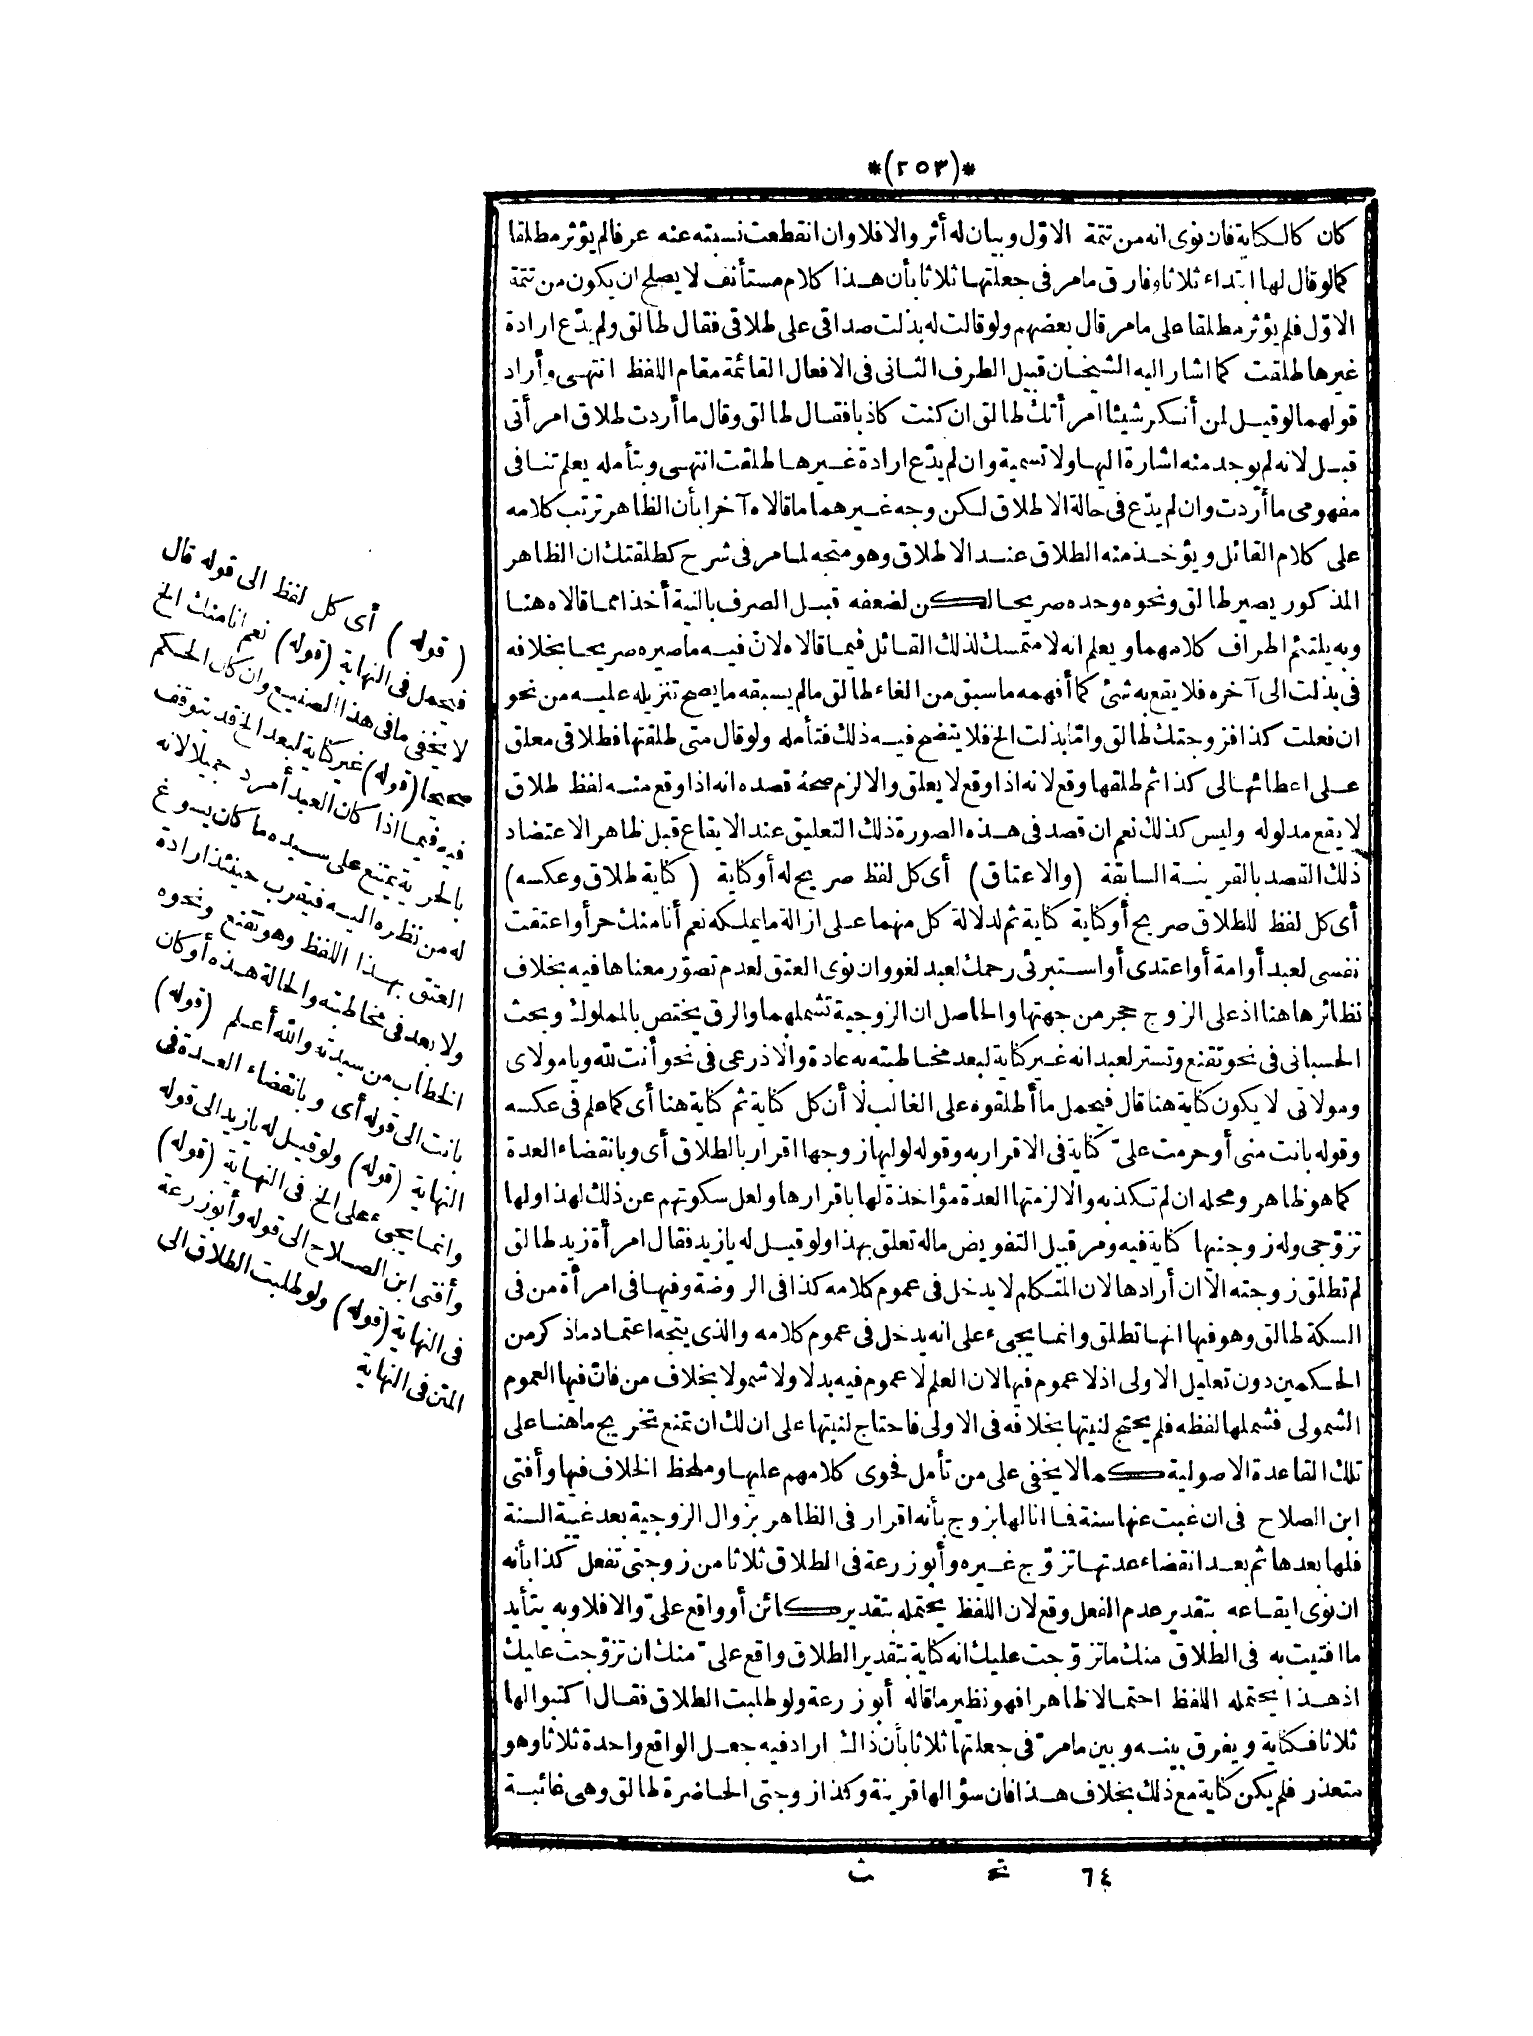 *(٢٥٣)*
كان كالكناية فان نوى انه من تتمة الاوّل وبيان له أثر والا فلا وان انقطعت نسبته عنه عرفا لم يؤثر مطلقا
كما لو قال لها ابتداء ثلاثا وفارق ما مر فى جعلتها ثلاثا بأن هذا كلام مستأنف لا يصلح ان يكون من تتمة
الاوّل فلم يؤثر مطلقا على ما مر قال بعضهم ولو قالت له بذلت صداقى على طلاقى فقال طالق ولم يدّع ارادة
غيرها طلقت كما اشار اليه الشيخان قبيل الطرف الثانى فى الافعال القائمة مقام اللفظ انتهى وأراد
قولهما لو قيل لمن أنكر شيئا امرأتك طالق ان كنت كاذبا فقال طالق وقال ما أردت طلاق امرأتى
قبل لانه لم يوجد منه اشارة اليها ولا تسمية وان لم يدّع ارادة غيرها طلقت انتهى وبتأمله يعلم تنافى
مفهومى ما أردت وان لم يدّع فى حالة الاطلاق لكن وجه غيرهما ما قالاه آخرا بأن الظاهر ترتب كلامه
على كلام القائل ويؤخذ منه الطلاق عند الاطلاق وهو متجه لما مر فى شرح كطلقتك ان الظاهر
المذكور يصير طالق ونحوه وحده صريحا لكن لضعفه قبل الصرف بالنية أخذا مما قالاه هنا
وبه يلتئم اطراف كلامهما ويعلم انه لا متمسك لذلك القائل فيما قالاه لانّ فيه ما صيره صريحا بخلافه
فى بذلت الى آخره فلا يقع به شئ كما أفهمه ما سبق من الغاء طالق ما لم يسبقه ما يصح تنزيله عليه من نحو
ان فعلت كذا فزوجتك طالق وامّا بذلت الخ فلا يتضح فيه ذلك فتأمله ولو قال متى طلقتها فطلاقى معلق
على اعطائها لى كذا ثم طلقها وقع لانه اذا وقع لا يعلق والا لزم صحة قصده انه اذا وقع منه لفظ طلاق
لا يقع مدلوله وليس كذلك نعم ان قصد فى هذه الصورة ذلك التعليق عند الايقاع قبل ظاهر الاعتضاد
ذلك القصد بالقرينة السابقة (والاعتاق) أى كل لفظ صريح له أو كناية (كناية طلاق وعكسه)
أى كل لفظ للطلاق صريح أو كناية كناية ثم لدلالة كل منهما على ازالة ما يملكه نعم أنا منك حر أو اعتقت
نفسى لعبد أو امة أو اعتدى أو استبرئى رحمك لعبد لغو وان نوى العتق لعدم تصوّر معناها فيه بخلاف
نظائرها هنا اذ على الزوج حجر من جهتها والحاصل ان الزوجية تشملهما والرق يختص بالمملوك وبحث
الحسبانى فى نحو تقنع وتستر لعبد انه غير كناية لبعد مخاطبته به عادة والاذرعى فى نحو أنت لله ويا مولاى
ومولاتى لا يكون كناية هنا قال فيحمل ما أطلقوه على الغالب لا أن كل كناية ثم كناية هنا أى كما علم فى عكسه
وقوله بانت منى أو حرمت علىّ كناية فى الاقرار به وقوله لوليها زوجها اقرار بالطلاق أى وبانقضاء العدة
كما هو ظاهر ومحله ان لم تكذبه والا لزمتها العدة مؤاخذة لها باقرارها ولعل سكوتهم عن ذلك لهذا ولها
تزوّجى وله زوجنيها كناية فيه ومر قبيل التفويض ما له تعلق بهذا ولو قيل له يا زيد فقال امرأة زيد طالق
لم تطلق زوجته الّا ان أرادها لان المتكلم لا يدخل فى عموم كلامه كذا فى الروضة وفيها فى امرأة من فى
السكة طالق وهو فيها انها تطلق وانما يجىء على انه يدخل فى عموم كلامه والذى يتجه اعتماد ما ذكر من
الحكمين دون تعليل الاولى اذ لا عموم فيها لان العلم لا عموم فيه بدلا ولا شمولا بخلاف من فانّ فيها العموم
الشمولى فشملها لفظه فلم يحتج لنيتها بخلافه فى الاولى فاحتاج لنيتها على ان لك ان تمنع تخريج ما هنا على
تلك القاعدة الاصولية كما لا يخفى على من تأمل فحوى كلامهم عليها وملحظ الخلاف فيها وأفتى
ابن الصلاح فى ان غبت عنها سنة فا انا لها بزوج بأنه اقرار فى الظاهر بزوال الزوجية بعد غيبة السنة
فلها بعدها ثم بعد انقضاء عدتها تزوّج غيره وأبو زرعة فى الطلاق ثلاثا من زوجتى تفعل كذا بأنه
ان نوى ايقاعه بتقدير عدم الفعل وقع لان اللفظ يحتمله بتقدير كائن أو واقع علىّ والا فلا وبه يتأيد
ما افتيت به فى الطلاق منك ما تزوّجت عليك انه كناية بتقدير الطلاق واقع علىّ منك ان تزوّجت عليك
اذ هذا يحتمله اللفظ احتمالا ظاهرا فهو نظير ما قاله أبو زرعة ولو طلبت الطلاق فقال اكتبوا لها
ثلاثا فكناية ويفرق بينه وبين ما مرّ فى جعلتها ثلاثا بأن ذاك اراد فيه جعل الواقع واحدة ثلاثا وهو
متعذر فلم يكن كناية مع ذلك بخلاف هذا فان سؤالها قرينة وكذا زوجتى الحاضرة طالق وهى غائبة
(قوله) أى كل لفظ الى قوله قال
فيحمل فى النهاية (قوله) نعم انا منك الخ
لا يخفى ما فى هذا الصنيع وان كان الحكم
صحيحا (قوله) غير كناية لبعد الخ قد يتوقف
فيه فيما اذا كان العبد أمرد جميلا لانه
بالحرية يمتنع على سيده ما كان يسوغ
له من نظره اليه فيقرب حينئذ ارادة
العتق بهذا اللفظ وهو تقنع ونحوه
ولا بعد فى مخاطبته والحالة هذه أو كان
الخطاب من سيدته والله أعلم (قوله)
بانت الى قوله أى وبانقضاء العدة فى
النهاية (قوله) ولو قيل له يا زيد الى قوله
وانما يجىء على الخ فى النهاية (قوله)
وأفتى ابن الصلاح الى قوله وأبو زرعة
فى النهاية (قوله) ولو طلبت الطلاق الى
المتن فى النهاية
٦٤ تح ث